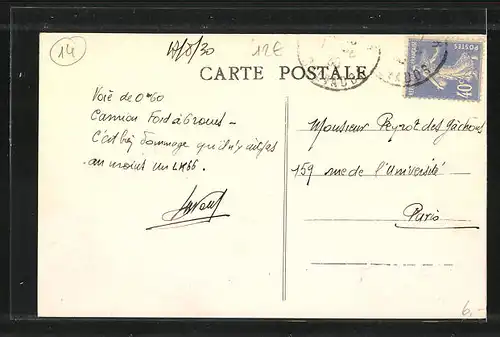 14
17/8/30
12€
CARTE POSTALE
CALVADOS
POSTES
40c
Voie de 0m60
Camion Ford à Grouts -
C'est bien dommage qu'il n'y ait pas
au moins un LK66.
Monsieur Peyrot des Gâchons
159 rue de l'Université
Paris
6,-